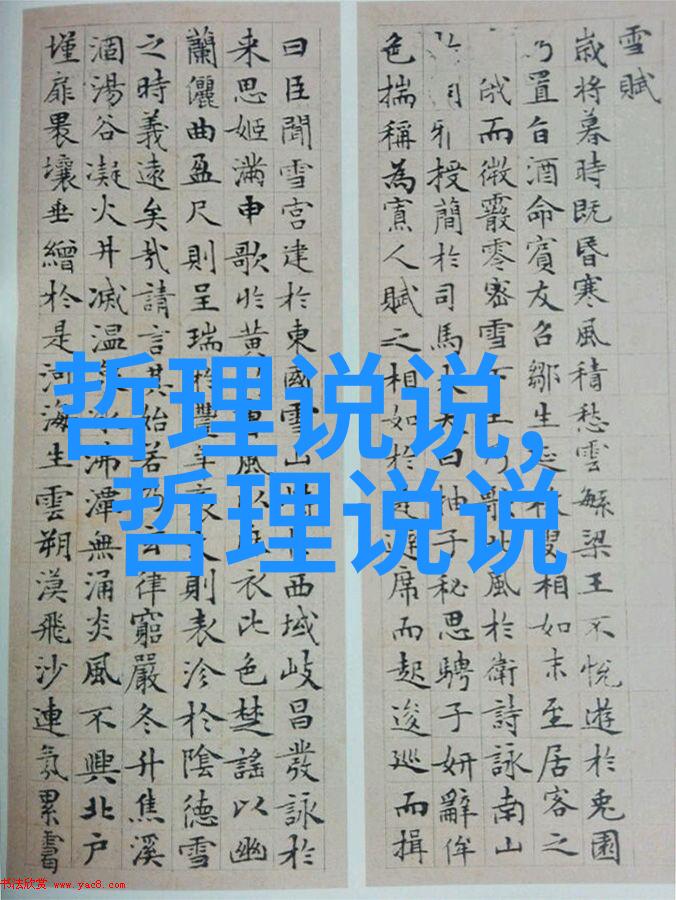 雪賦
歲将暮時既昏寒風積愁雲繁梁王不悅遊於兎園
乃置旨酒命賓友召鄒生延枚叟相如末至居客之
俄而微霰零密雪下王乃歌北風於衛詩詠南山
授簡於司馬大夫曰抽子秘思騁子妍辭侔
色揣稱為寡人賦之相如於是避席而起逡巡而揖
曰臣聞雪宮建於東國雪山峙於西域岐昌發詠於
来思姬滿申歌於黄風以衣比色楚謠以幽
蘭儷曲盈尺則呈瑞於豐年袤丈則表沴於陰德雪
之時義遠矣哉請言其始若乃玄律窮嚴冬升焦溪
涸湯谷凝火井滅温泉冰沸潭無涌炎風不興北户
墐扉裸壤垂繒於是河海生雲朔漠飛沙連氛累霭
哲理说说,
哲理说说
书法欣赏 www.yac8.com